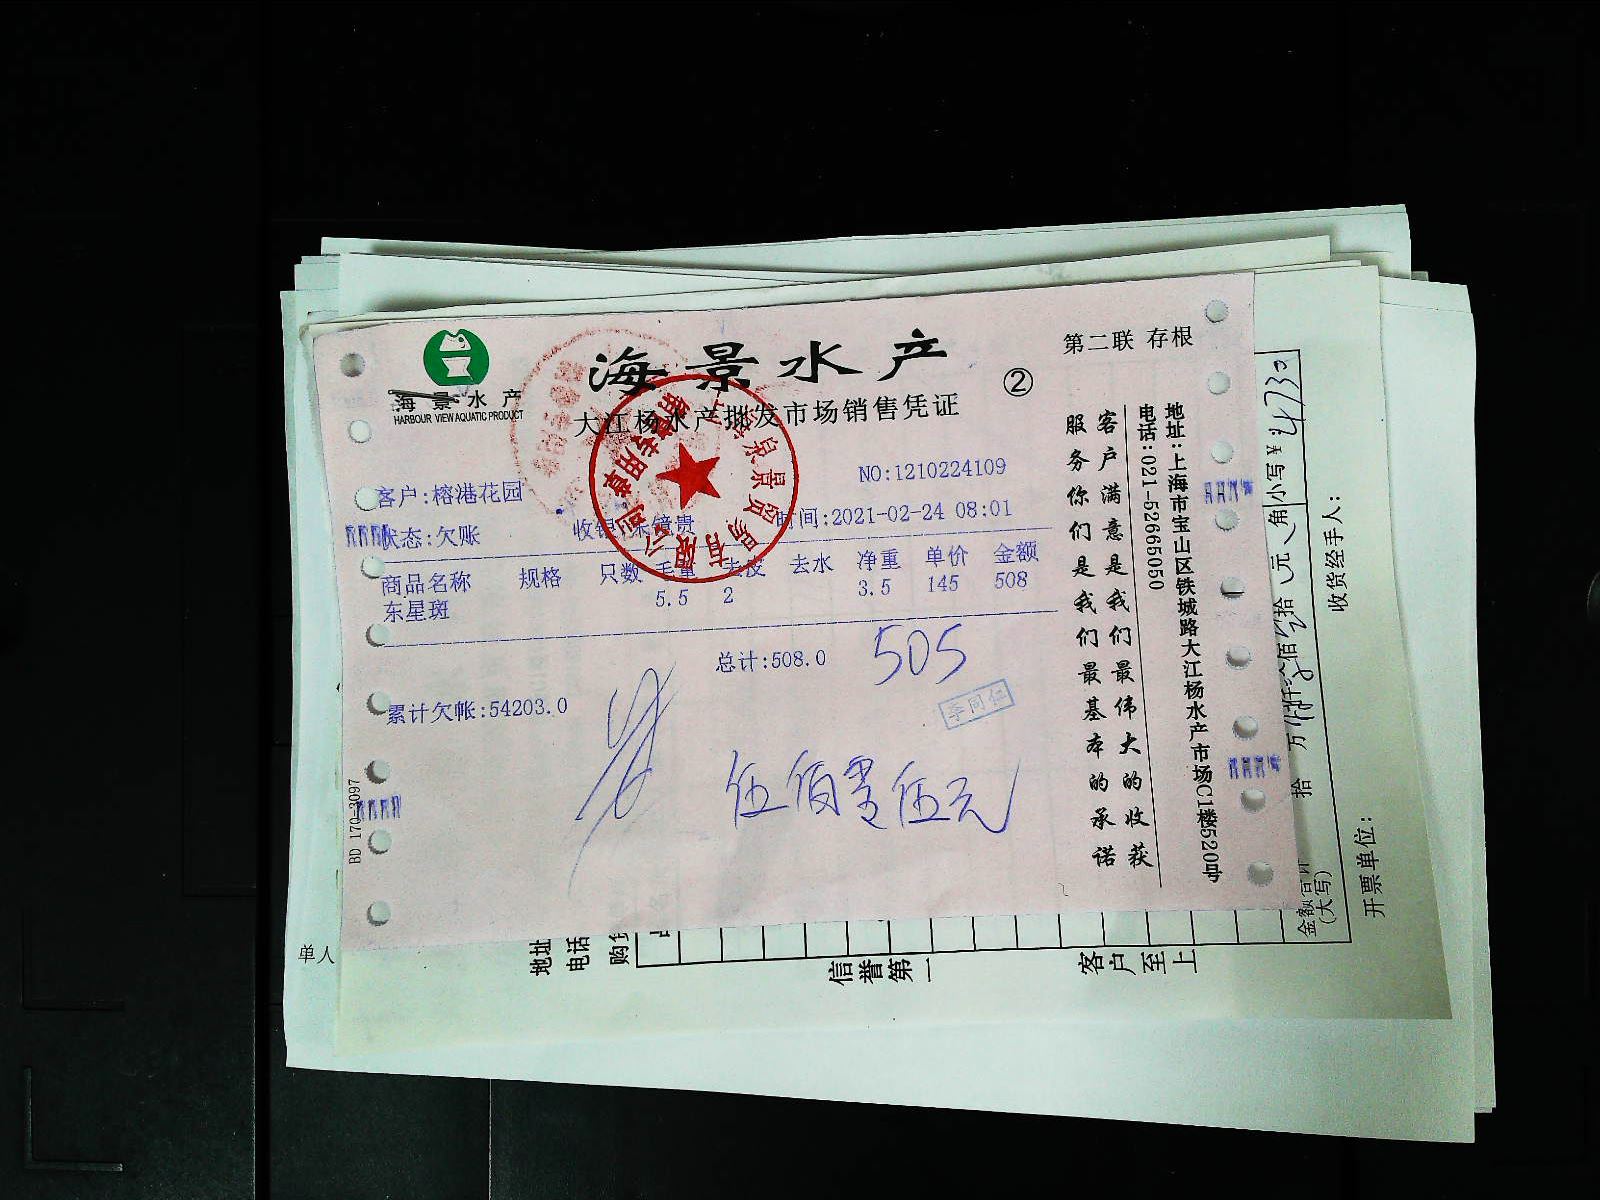 海景水产
HARBOUR VIEW AQUATIC PRODUCT
海景水产
②
第二联 存根
大江杨水产批发市场销售凭证
NO:1210224109
客户:榕港花园
状态:欠账
时间:2021-02-24 08:01
商品名称 规格 只数 毛重 去皮 去水 净重 单价 金额
东星斑 5.5 2 3.5 145 508
总计:508.0 505
累计欠帐:54203.0
李同仁
伍佰零伍元
BD 170-3097
客户满意是我们最伟大的收获
服务你们是我们最基本的承诺
地址:上海市宝山区铁城路大江杨水产市场C1楼520号
电话:021-52665050
泉景贸易有限公司
销售专用章
小写¥ 4730
金额合计
(大写)
拾 万 仟 佰 拾 元 角
收货经手人:
开票单位:
单人
地址
电话
信誉第一
客户至上